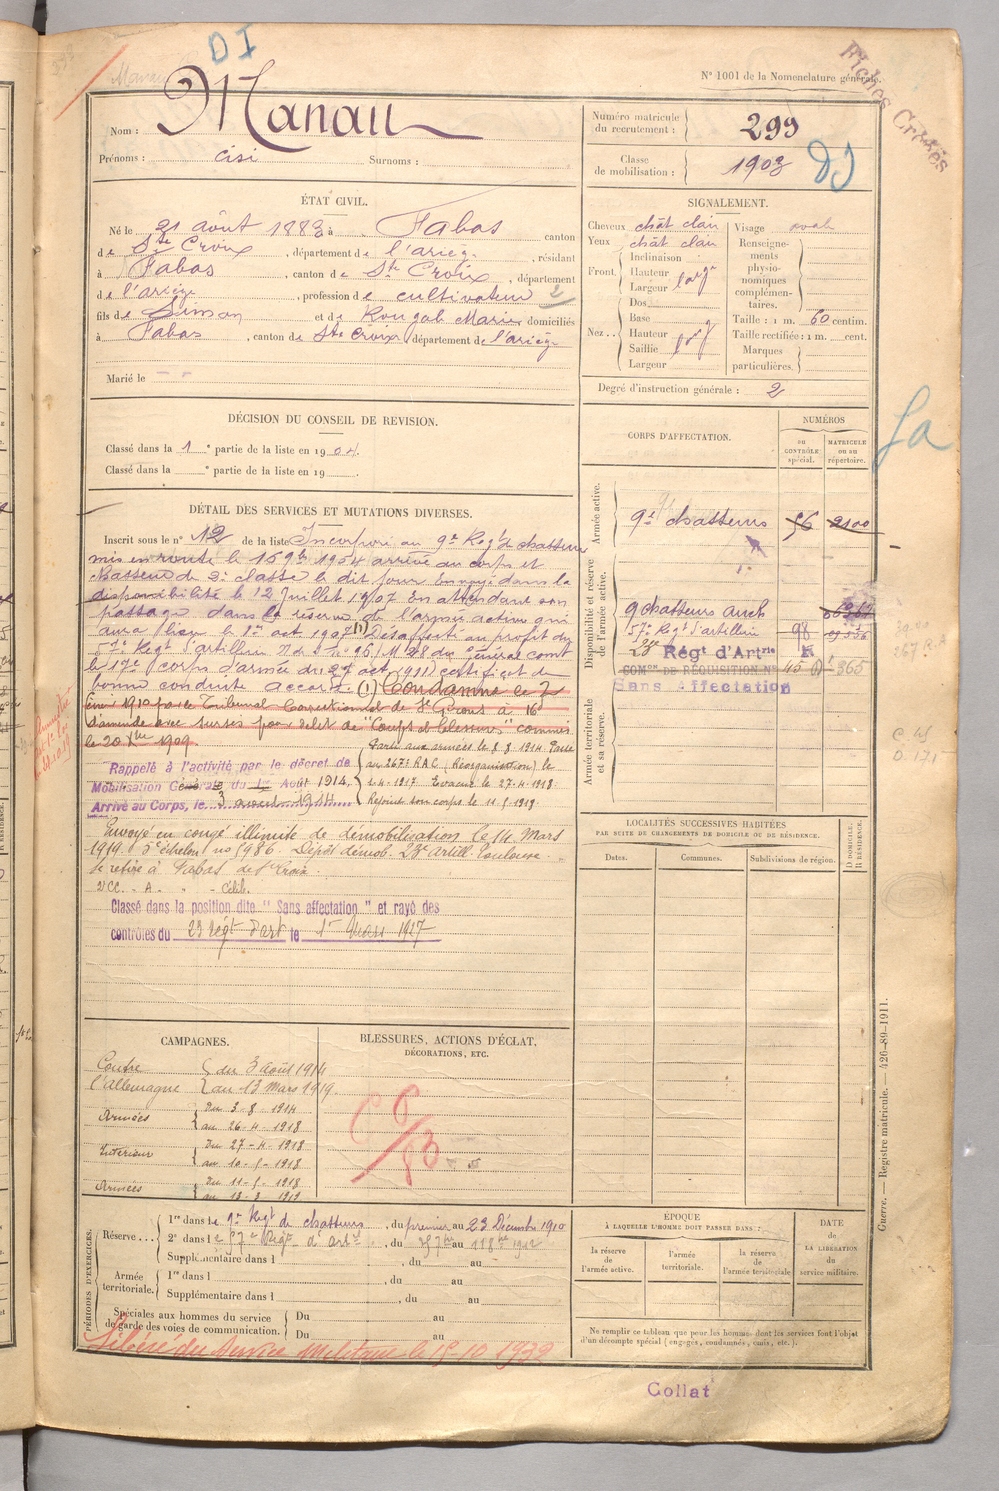 DI
Fiches Croisés
N° 1001 de la Nomenclature générale.
Nom : Manau
Prénoms : cisi Surnoms :
Numéro matricule du recrutement : 299
Classe de mobilisation : 1903
DI
ÉTAT CIVIL.
Né le 21 août 1883 à Fabas canton
de Ste Croix, département de l'ariège, résidant
à Fabas, canton de Ste Croix, département
de l'ariège, profession de cultivateur 2
fils de Simon et de Rougab Marie domiciliés
à Fabas, canton de Ste Croix département de l'ariège
Marié le
SIGNALEMENT.
Cheveux chât clair
Yeux chât clair
Front. Inclinaison
Hauteur
Largeur large
Dos
Nez .. Base
Hauteur
Saillie
Largeur
Visage ovale
Renseignements physionomiques complémentaires.
Taille : 1 m. 60 centim.
Taille rectifiée : 1 m. cent.
Marques particulières.
Degré d'instruction générale : 2
DÉCISION DU CONSEIL DE REVISION.
Classé dans la 1e partie de la liste en 1904.
Classé dans la e partie de la liste en 19
CORPS D'AFFECTATION.
NUMÉROS
au CONTRÔLE spécial.
MATRICULE ou au répertoire.
Armée active.
9e chasseurs 56 2100
Disponibilité et réserve de l'armée active.
9 chasseurs auch
57e Regt d'artillerie 98
23e Régt d'Artie
COMon DE RÉQUISITION No 45 365
Sans Affectation
Armée territoriale et sa réserve.
DÉTAIL DES SERVICES ET MUTATIONS DIVERSES.
Inscrit sous le n° 12 de la liste Incorporé au 9e Regt de chasseurs
mis en route le 15 9bre 1904 arrivé au corps et
chasseur de 2e classe le dit jour Envoyé dans la
disponibilité le 12 Juillet 1907 En attendant son
passage dans la réserve de l'armée active qui
aura lieu le 1er oct 1907 (1) Désaffecté au profit du
57e Regt d'artillerie N de S n° 96/M 28 du général comt
le 17e corps d'armée du 27 oct 1911) certificat de
bonne conduite accordé. (1) Condamné le 2
février 1910 par le Tribunal Correctionnel de St Girons à 16
d'amende avec sursis pour délit de "Coups et blessures" commis
le 20 Xbre 1909.
Rappelé à l'activité par le décret de
Mobilisation Générale du 1er Août 1914.
Arrivé au Corps, le 3 août 1914
Parti aux armées le 8 8 1914 Passé
au 267e RAC (Réorganisation) le
1-4-1917 Evacué le 27-4-1918
Rejoint son corps le 11-5-1918
Envoyé en congé illimité de démobilisation le 14 Mars
1919 5e échelon no 5986. Dépôt démob. 23e artill. Toulouse.
Se retire à Fabas de Ste Croix
VCC. - A. " - Célib.
Classé dans la position dite "Sans affectation" et rayé des
contrôles du 23 régt d'art le 1er Mars 1927
LOCALITÉS SUCCESSIVES HABITÉES
PAR SUITE DE CHANGEMENTS DE DOMICILE OU DE RÉSIDENCE.
Dates. Communes. Subdivisions de région. D. DOMICILE. R. RÉSIDENCE.
CAMPAGNES.
Contre l'allemagne du 3 août 1914
au 13 Mars 1919.
Armées Du 3-8-1914
au 26-4-1918
Intérieur Du 27-4-1918
au 10-5-1918
Armées Du 11-5-1918
au 13-3-1919
BLESSURES, ACTIONS D'ÉCLAT,
DÉCORATIONS, ETC.
PÉRIODES D'EXERCICES.
Réserve ... 1re dans le 9e Regt de chasseurs, du premier au 23 Décembre 1910
2e dans le 57e Regt d'artie, du 25 7bre au 11 8bre 1912
Supplémentaire dans l , du au
Armée territoriale. 1re dans l , du au
Supplémentaire dans l , du au
Spéciales aux hommes du service de garde des voies de communication. Du au
Du au
Libéré du Service Militaire le 15-10-1932
ÉPOQUE
À LAQUELLE L'HOMME DOIT PASSER DANS :
la réserve de l'armée active.
l'armée territoriale.
la réserve de l'armée territoriale
DATE DE LA LIBÉRATION du service militaire.
Ne remplir ce tableau que pour les hommes dont les services font l'objet d'un décompte spécial (engagés, condamnés, omis, etc.).
Guerre. — Registre matricule. — 426-89-1911.
Collat